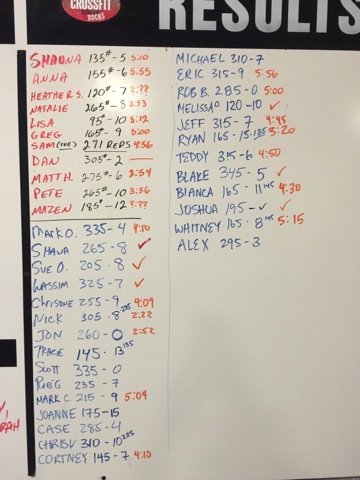 CROSSFIT
ROCKS
RESULTS
SHAUNA 135# - 5 5:10
ANNA 155# - 6 5:55
HEATHER S. 120# - 7 ?:??
NATALIE 265# - 8 5:53
LISA 95# - 10 5:12
GREG 165# - 9 5:00
SAM (TUE) 271 REPS 4:56
DAN 305# - 2 —
MATT H. 275# - 6 2:54
PETE 265# - 10 3:56
MAZEN 185# - 12 ?:??
MARK O. 335 - 4 4:10
SHAUA 265 - 8 ✓
SUE O. 205 - 8 ✓
WASSIM 325 - 7 ✓
CHRISTINE 255 - 9 4:09
NICK 305 - 8 2:22
JON 260 - 0 2:52
TRACIE 145 - 13
SCOTT 335 - 0
235 - 7
MARK C. 215 - 9 5:04
JOANNE 175 - 15
CASE 285 - 4
310 - 10
CORTNEY 145 - 7 4:10
MICHAEL 310 - 7
ERIC 315 - 9 5:56
ROB B. 285 - 0 5:00
MELISSA 120 - 10 ✓
JEFF 315 - 7 4:45
RYAN 165 - 15 3:20
TEDDY 315 - 6 4:50
BLAKE 345 - 5 ✓
BIANCA 165 - 11 4:30
JOSHUA 195 - ✓ ✓
WHITNEY 165 - 8 5:15
ALEX 295 - 3